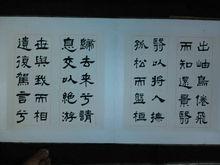 出岫鳥倦飛
而知還景翳
翳以將入撫
孤松而盤桓
歸去來兮請
息交以絕游
世與我而相
遺復駕言兮